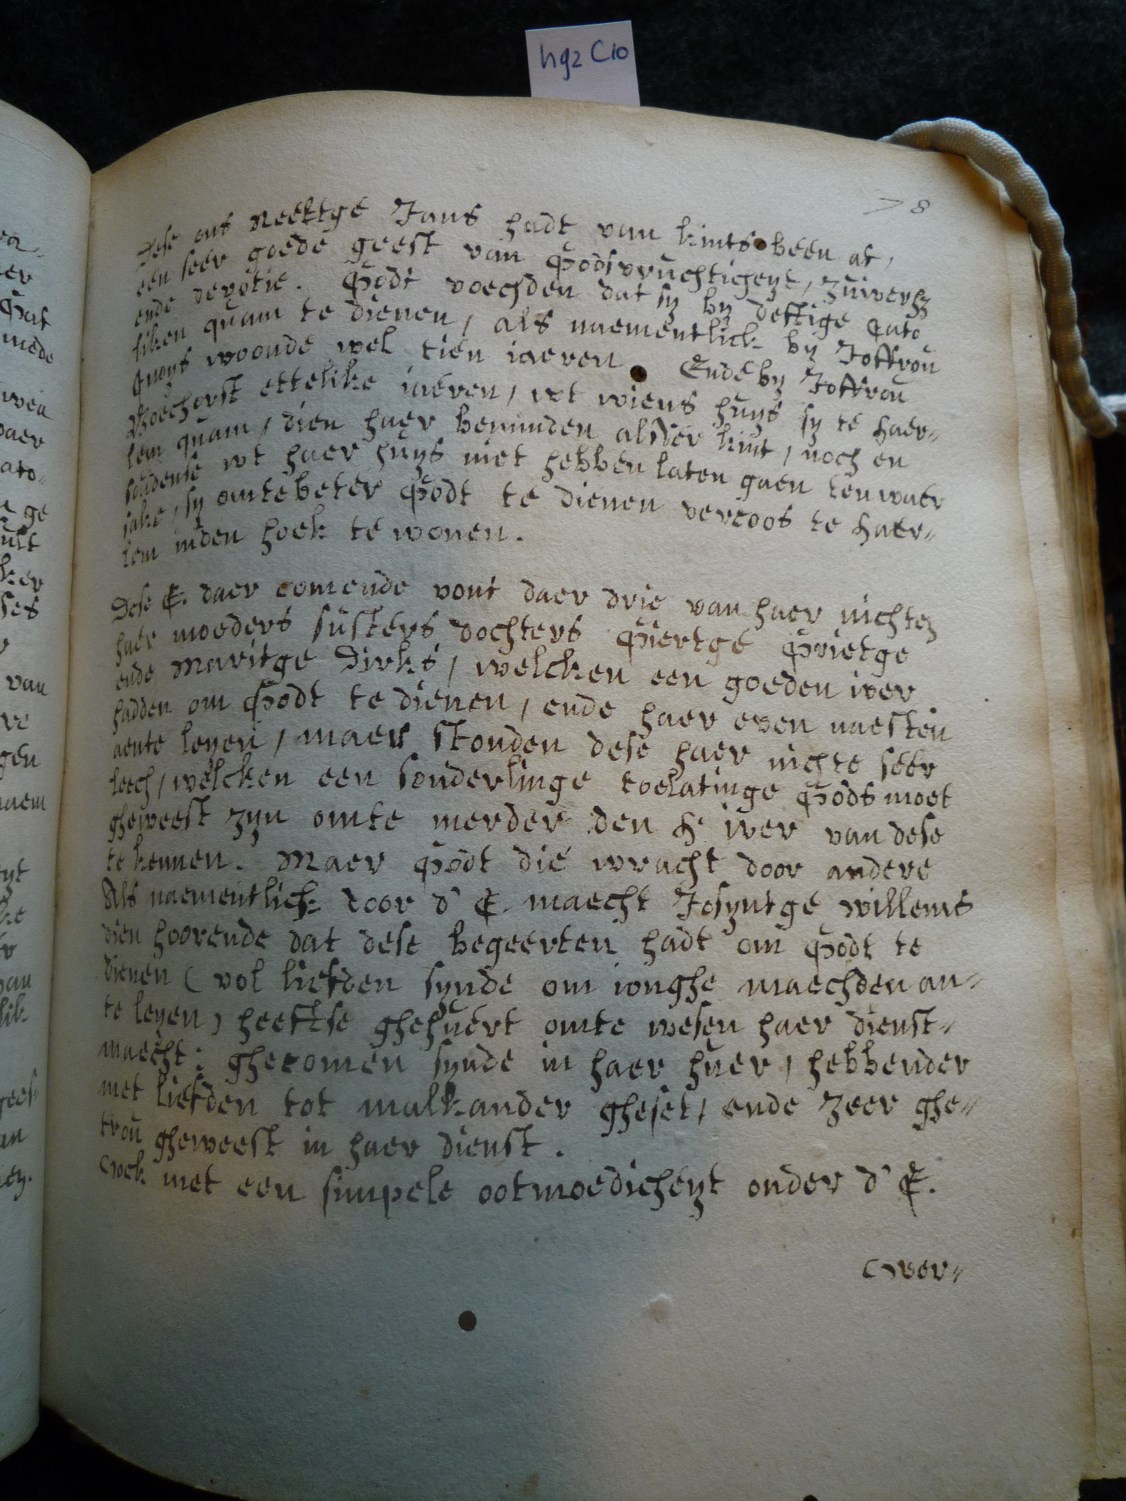 hg2 C10
78
Dese ons Neeltge Jans hadt van kints been af,
een seer goede geest van Godsvruchticheyt, zuiverh.
ende devotie. Godt voechden dat sy by deftige Cato
liken quam te dienen, als naementlick by Joffrou
woonde wel tien iaeren. Ende by Joffrou
Boechorst ettelike iaeren, wt wiens huys sy te Haer-
lem quam, dien haer beminden als haer kint, noch en
soudense wt haer huys niet hebben laten gaen ten waer
sake, sy omte beter Godt te dienen vercoos te Haer-
lem inden hoek te wonen.
Dese E. daer comende vont daer drie van haer nichten
haer moeders susters dochters Piertge Grietge
ende Maritge Dirks, welcken een goeden iver
hadden om Godt te dienen, ende haer even naesten
aente leyen, maer stonden dese haer nichte seer
leech, welcken een sonderlinge toelatinge Gods moet
gheweest zyn omte merder den H. iver van dese
te kennen. Maer Godt die wracht door andere
Als naementlick door d' E. maecht Josyntge Willems
dien hoorende dat dese begeerten hadt om Godt te
dienen (vol liefden synde om ionghe maechden an-
te leyen) heeftse ghehuert omte wesen haer dienst-
maecht: ghecomen synde in haer huer, hebbender
met liefden tot malkander gheset, ende zeer ghe-
trou gheweest in haer dienst.
Oock met een simpele ootmoedicheyt onder d' E.
Over-